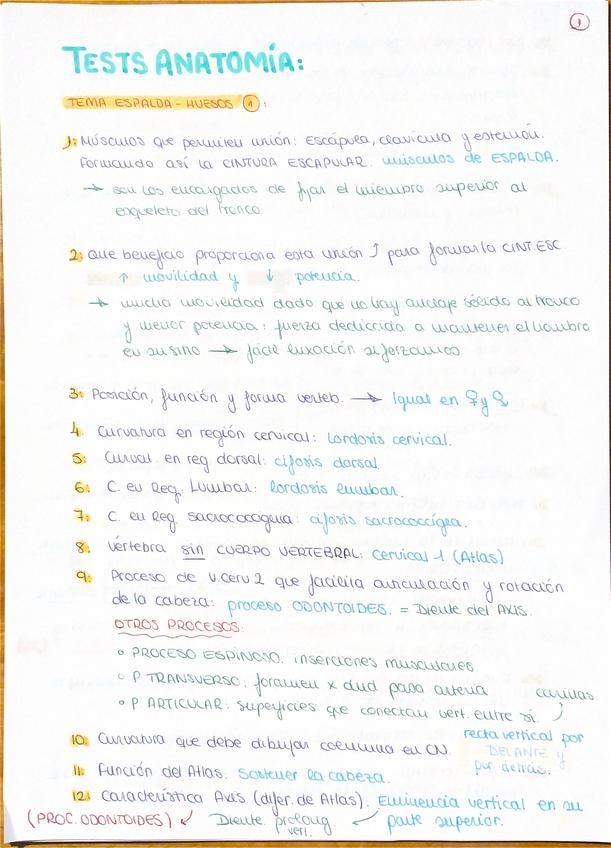 1
TESTS ANATOMÍA:
TEMA ESPALDA - HUESOS 1:
1: Músculos que permiten unión: Escápula, clavícula y esternón.
Formando así la CINTURA ESCAPULAR. músculos de ESPALDA.
→ son los encargados de fijar el miembro superior al
esqueleto del tronco.
2: Que beneficio proporciona esta unión ⤴ para formar la CINT. ESC.
↑ movilidad y ↓ potencia.
→ mucha movilidad dado que no hay anclaje sólido al tronco
y menor potencia: fuerza dedicada a mantener el hombro
en su sitio → fácil luxación si forzamos.
3: Posición, función y forma verteb. → Igual en ♀ y ♀
4. Curvatura en región cervical: lordosis cervical.
5: Curvat. en reg dorsal: cifosis dorsal.
6: C. en Reg. Lumbar: lordosis lumbar.
7: C. en Reg. sacrococcígea: cifosis sacroccígea.
8. Vértebra sin CUERPO VERTEBRAL: Cervical 1 (Atlas)
9: Proceso de v.cerv 2 que facilita articulación y rotación
de la cabeza: proceso ODONTOIDES. = Diente del AXIS.
OTROS PROCESOS:
o PROCESO ESPINOSO: inserciones musculares.
o P TRANSVERSO: foramen x dnd pasa arteria
o P ARTICULAR: superficies que conectan vért. entre sí. carillas
10. Curvatura que debe dibujar columna en CN. recta vertical por
DELANTE y
por detrás.
11. Función del Atlas: Sostener la cabeza.
12: Característica Axis (difer. de Atlas): Eminencia vertical en su
parte superior.
(PROC. ODONTOIDES) ↙ Diente. prolong ↙
vert.